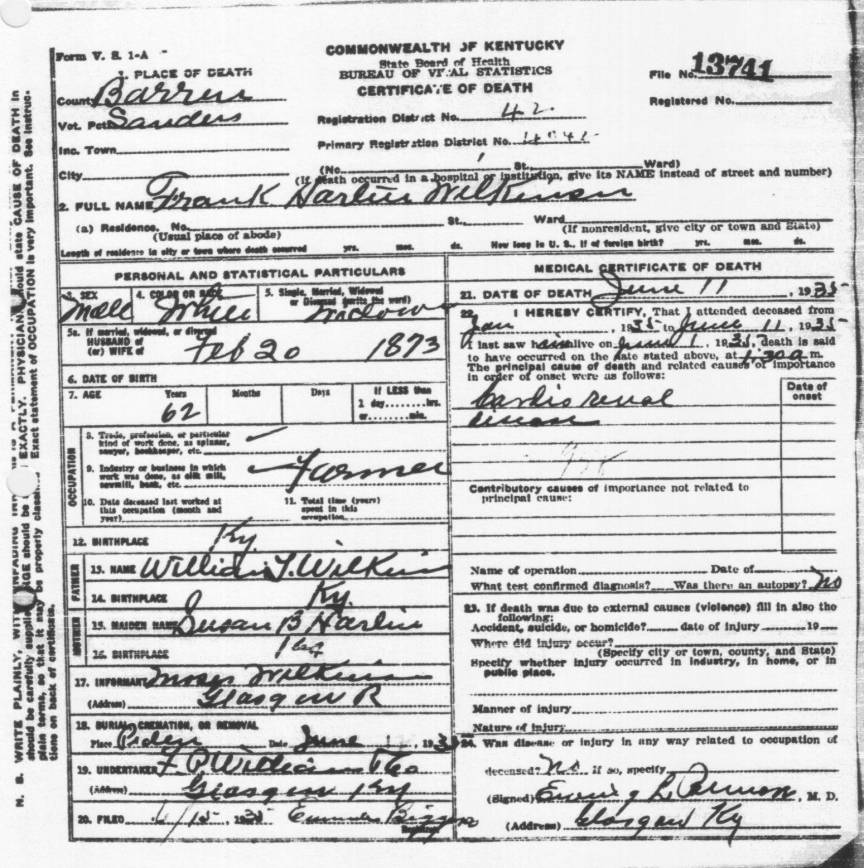 Form V. S. 1-A
COMMONWEALTH OF KENTUCKY
State Board of Health
BUREAU OF VITAL STATISTICS
CERTIFICATE OF DEATH
File No. 13741
Registered No.
1. PLACE OF DEATH
County Barren
Vot. Pct. Sanders
Inc. Town
City
Registration District No. 42
Primary Registration District No.
(No. St. Ward)
(If death occurred in a hospital or institution, give its NAME instead of street and number)
2. FULL NAME Frank Harlin Wilkinson
(a) Residence. No. St. Ward
(Usual place of abode) (If nonresident, give city or town and State)
Length of residence in city or town where death occurred yrs. mos. ds. How long in U. S., if of foreign birth? yrs. mos. ds.
PERSONAL AND STATISTICAL PARTICULARS
3. SEX 4. COLOR OR RACE 5. Single, Married, Widowed
or Divorced (write the word)
Male White Widow
5a. If married, widowed, or divorced
HUSBAND of
(or) WIFE of
Feb 20 1873
6. DATE OF BIRTH
7. AGE Years Months Days If LESS than
1 day, hrs.
or min.
62
OCCUPATION
8. Trade, profession, or particular
kind of work done, as spinner,
sawyer, bookkeeper, etc.
9. Industry or business in which
work was done, as silk mill,
sawmill, bank, etc. Farmer
10. Date deceased last worked at
this occupation (month and
year)
11. Total time (years)
spent in this
occupation
12. BIRTHPLACE Ky.
FATHER
13. NAME William T. Wilkinson
14. BIRTHPLACE Ky.
MOTHER
15. MAIDEN NAME Susan B Harlin
16. BIRTHPLACE Ky
17. INFORMANT Moses Wilkinson
(Address) Glasgow R
18. BURIAL, CREMATION, OR REMOVAL
Place Date June 1935
19. UNDERTAKER
(Address) Glasgow Ky
20. FILED 6/15, 1935
MEDICAL CERTIFICATE OF DEATH
21. DATE OF DEATH June 11, 1935
22. I HEREBY CERTIFY, That I attended deceased from
Jan, 1935 to June 11, 1935
I last saw him alive on June 1, 1935, death is said
to have occurred on the date stated above, at 1:30 a m.
The principal cause of death and related causes of importance
in order of onset were as follows:
Date of
onset
Cardio renal
disease
Contributory causes of importance not related to
principal cause:
Name of operation Date of
What test confirmed diagnosis? Was there an autopsy? No
23. If death was due to external causes (violence) fill in also the
following:
Accident, suicide, or homicide? date of injury 19
Where did injury occur?
(Specify city or town, county, and State)
Specify whether injury occurred in industry, in home, or in
public place.
Manner of injury
Nature of injury
24. Was disease or injury in any way related to occupation of
deceased? No If so, specify
(Signed) M. D.
(Address) Glasgow Ky